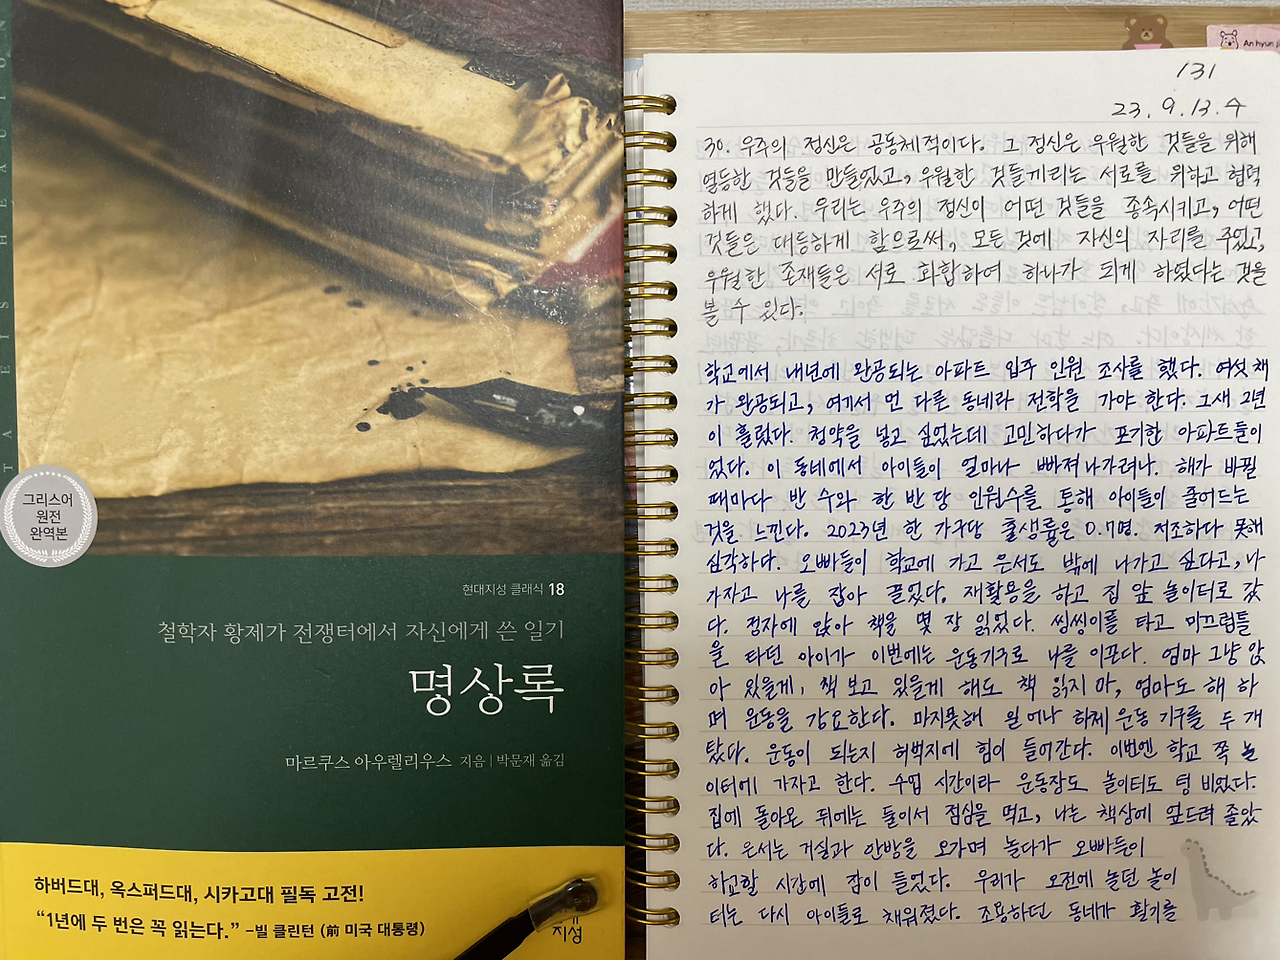 그리스어
원전
완역본
현대지성 클래식 18
철학자 황제가 전쟁터에서 자신에게 쓴 일기
명상록
마르쿠스 아우렐리우스 지음 | 박문재 옮김
하버드대, 옥스퍼드대, 시카고대 필독 고전!
“1년에 두 번은 꼭 읽는다.” –빌 클린턴 (前 미국 대통령)
지성
An hyun ji
131
23. 9. 13. 수
30. 우주의 정신은 공동체적이다. 그 정신은 우월한 것들을 위해
열등한 것들을 만들었고, 우월한 것들끼리는 서로를 위하고 협력
하게 했다. 우리는 우주의 정신이 어떤 것들을 종속시키고, 어떤
것들은 대등하게 함으로써, 모든 것에 자신의 자리를 주었고,
우월한 존재들은 서로 화합하여 하나가 되게 하였다는 것을
볼 수 있다.
학교에서 내년에 완공되는 아파트 입주 인원 조사를 했다. 여섯 채
가 완공되고, 여기서 먼 다른 동네라 전학을 가야 한다. 그새 2년
이 흘렀다. 청약을 넣고 싶었는데 고민하다가 포기한 아파트들이
었다. 이 동네에서 아이들이 얼마나 빠져나가려나. 해가 바뀔
때마다 반 수와 한 반 당 인원수를 통해 아이들이 줄어드는
것을 느낀다. 2023년 한 가구당 출생률은 0.7명. 저조하다 못해
심각하다. 오빠들이 학교에 가고 은서도 밖에 나가고 싶다고, 나
가자고 나를 잡아 끌었다. 재활용을 하고 집 앞 놀이터로 갔
다. 정자에 앉아 책을 몇 장 읽었다. 씽씽이를 타고 미끄럼틀
을 타던 아이가 이번에는 운동기구로 나를 이끈다. 엄마 그냥 앉
아 있을게, 책 보고 있을게 해도 책 읽지 마, 엄마도 해 하
며 운동을 강요한다. 마지못해 일어나 하체 운동 기구를 두 개
탔다. 운동이 되는지 허벅지에 힘이 들어간다. 이번엔 학교 쪽 놀
이터에 가자고 한다. 수업 시간이라 운동장도 놀이터도 텅 비었다.
집에 돌아온 뒤에는 둘이서 점심을 먹고, 나는 책상에 엎드려 졸았
다. 은서는 거실과 안방을 오가며 놀다가 오빠들이
하교할 시간에 잠이 들었다. 우리가 오전에 놀던 놀이
터는 다시 아이들로 채워졌다. 조용하던 동네가 활기를